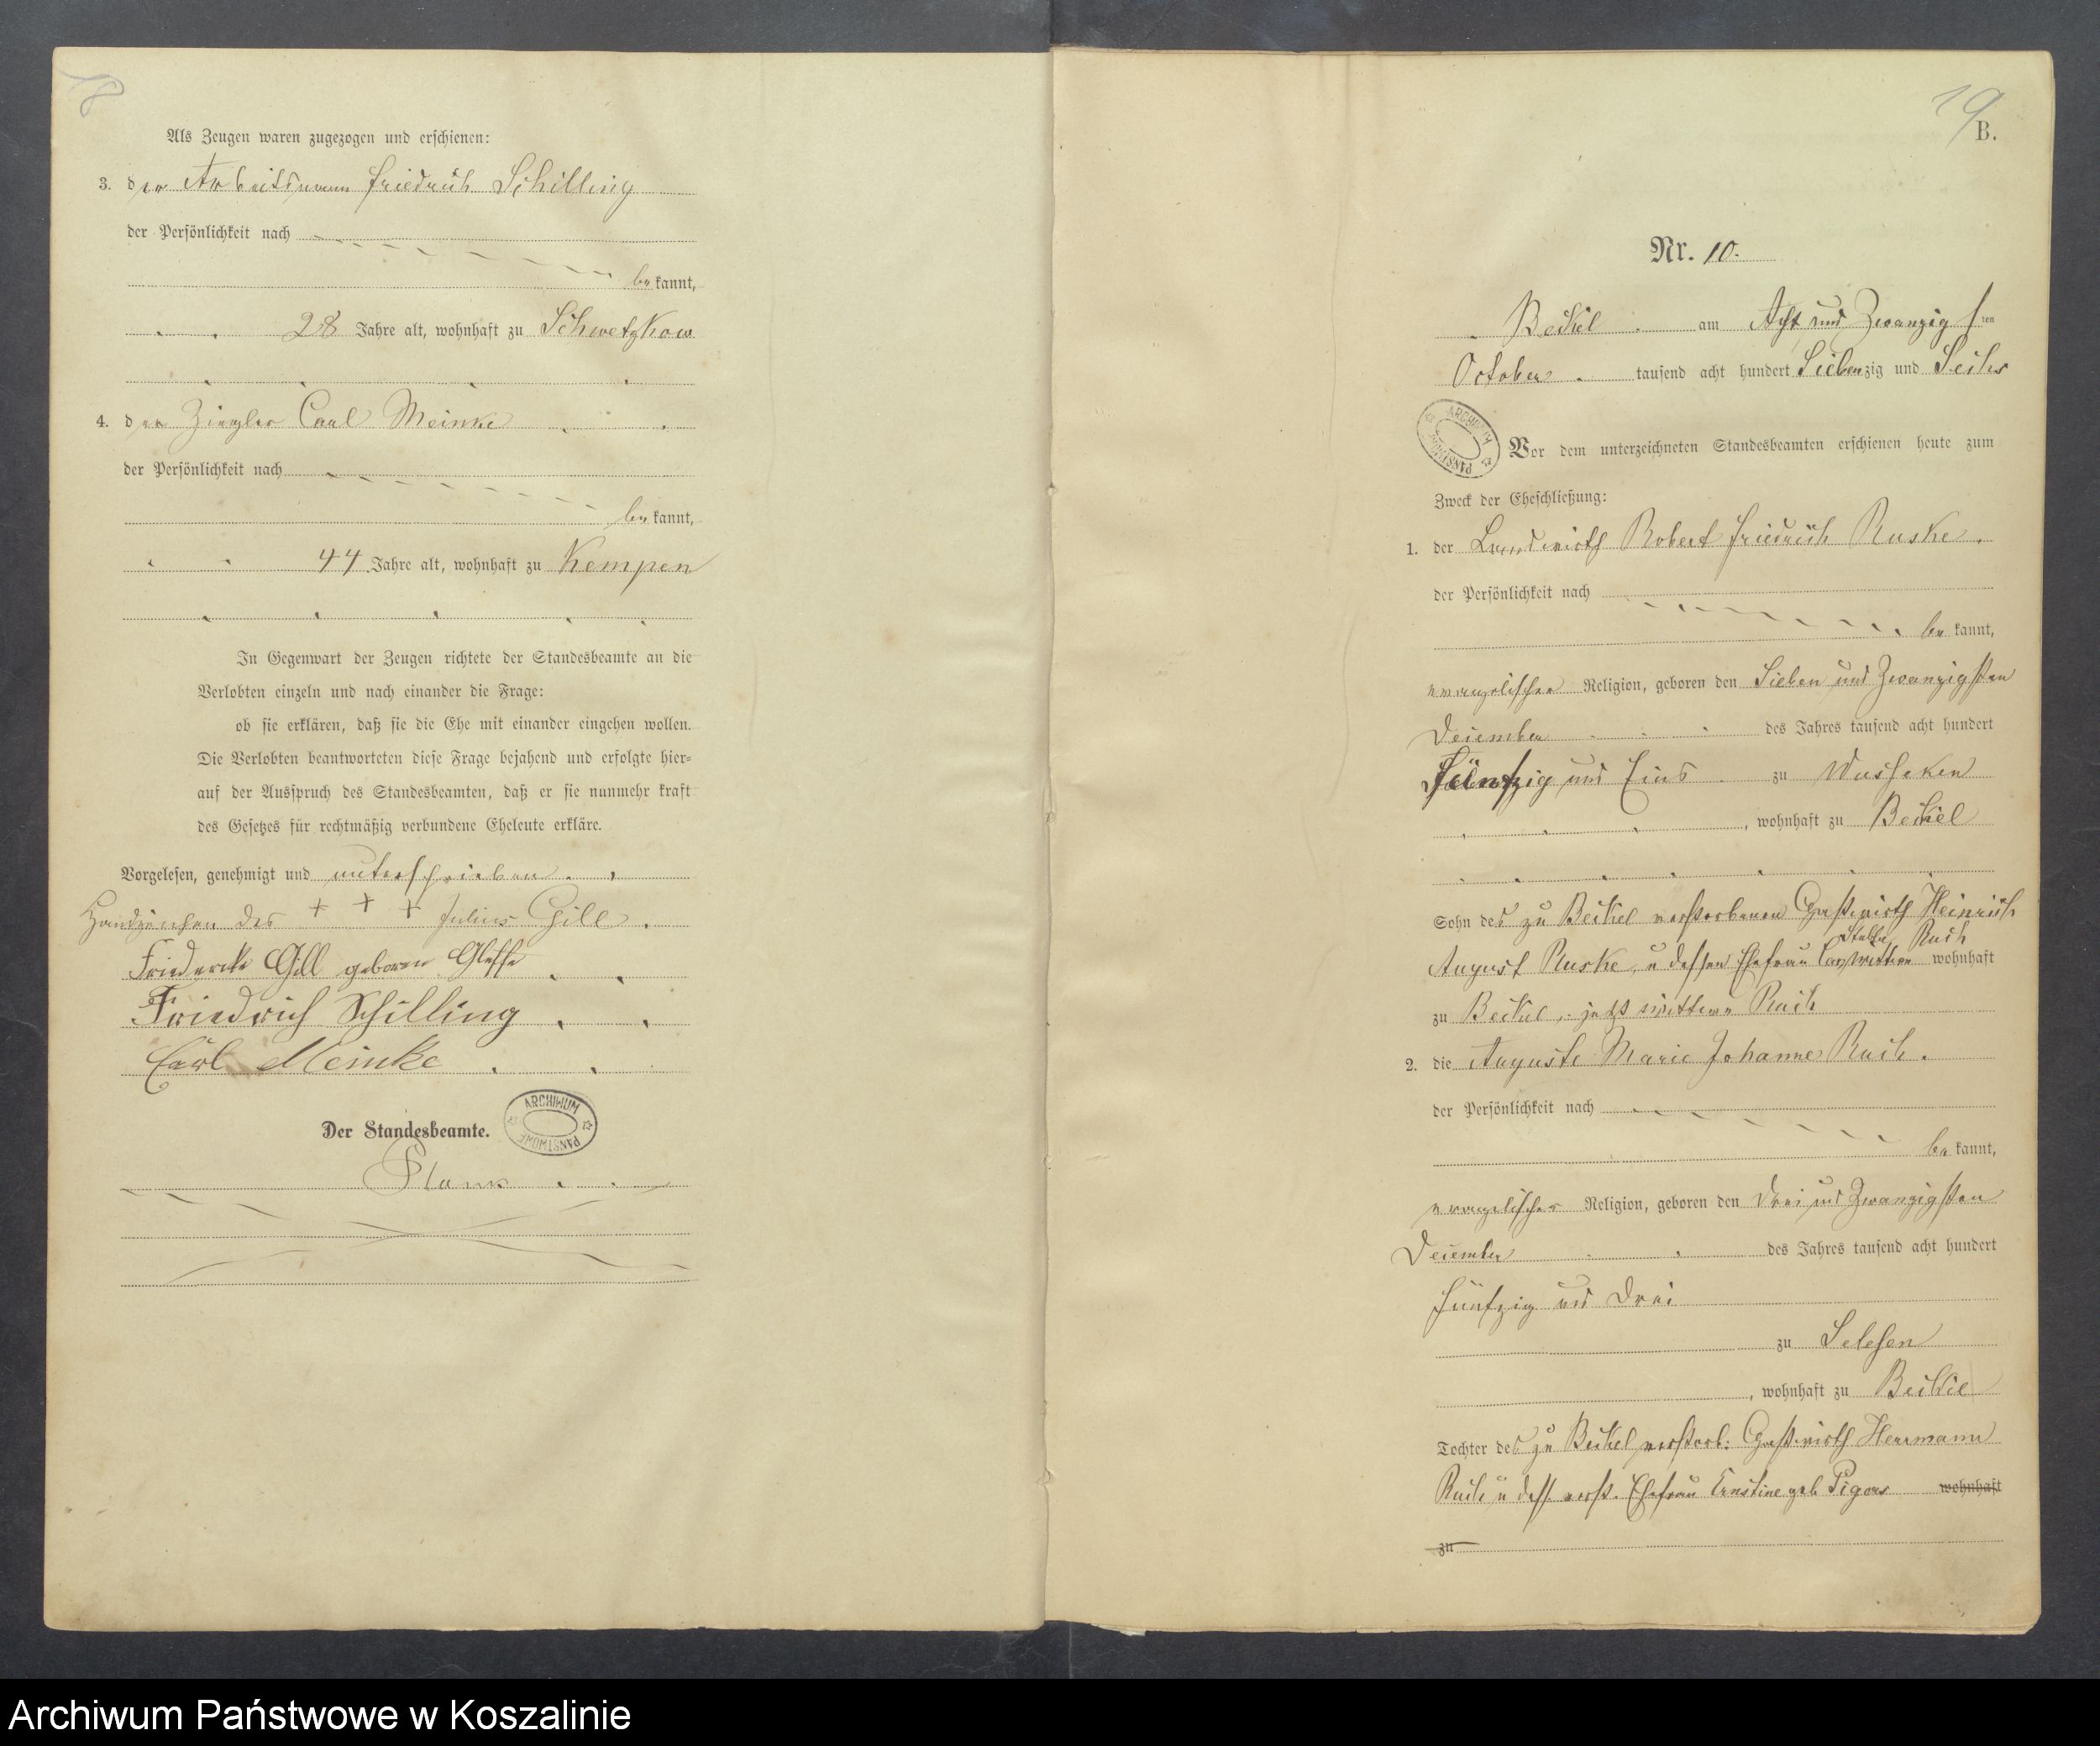 18
Als Zeugen waren zugezogen und erschienen:
3. der Arbeitsmann Friedrich Schilling
der Persönlichkeit nach
bekannt,
28 Jahre alt, wohnhaft zu Schwetzkow
4. der Ziegler Carl Meinke
der Persönlichkeit nach
bekannt,
44 Jahre alt, wohnhaft zu Kempen
In Gegenwart der Zeugen richtete der Standesbeamte an die
Verlobten einzeln und nach einander die Frage:
ob sie erklären, daß sie die Ehe mit einander eingehen wollen.
Die Verlobten beantworteten diese Frage bejahend und erfolgte hier-
auf der Ausspruch des Standesbeamten, daß er sie nunmehr kraft
des Gesetzes für rechtmäßig verbundene Eheleute erkläre.
Vorgelesen, genehmigt und unterschrieben.
Handzeichen des + + + Julius Gill.
Friedericke Gill geboren
Friedrich Schilling
Carl Meinke
Der Standesbeamte.
ARCHIWUM PAŃSTWOWE
19
B.
Nr. 10.
Beckel am Acht und Zwanzigsten
October tausend acht hundert Siebenzig und Sechs
ARCHIWUM PAŃSTWOWE
Vor dem unterzeichneten Standesbeamten erschienen heute zum
Zweck der Eheschließung:
1. der Landwirth Robert Friedrich Ruske.
der Persönlichkeit nach
bekannt,
evangelischer Religion, geboren den Sieben und Zwanzigsten
December des Jahres tausend acht hundert
Fünfzig und Eins zu Wusseken
, wohnhaft zu Beckel
Sohn des zu Beckel verstorbenen Gastwirth Heinrich
August Ruske, u dessen Ehefrau wohnhaft
zu Beckel, jetzt
2. die Auguste Marie Johanne Ruch.
der Persönlichkeit nach
bekannt,
evangelischer Religion, geboren den Drei und Zwanzigsten
December des Jahres tausend acht hundert
Fünfzig und Drei
zu Selesen
, wohnhaft zu Beckel
Tochter des zu Beckel verstorb: Gastwirth Herrmann
Ruch u dess. verst. Ehefrau Ernstine geb Pigors wohnhaft
zu
Archiwum Państwowe w Koszalinie